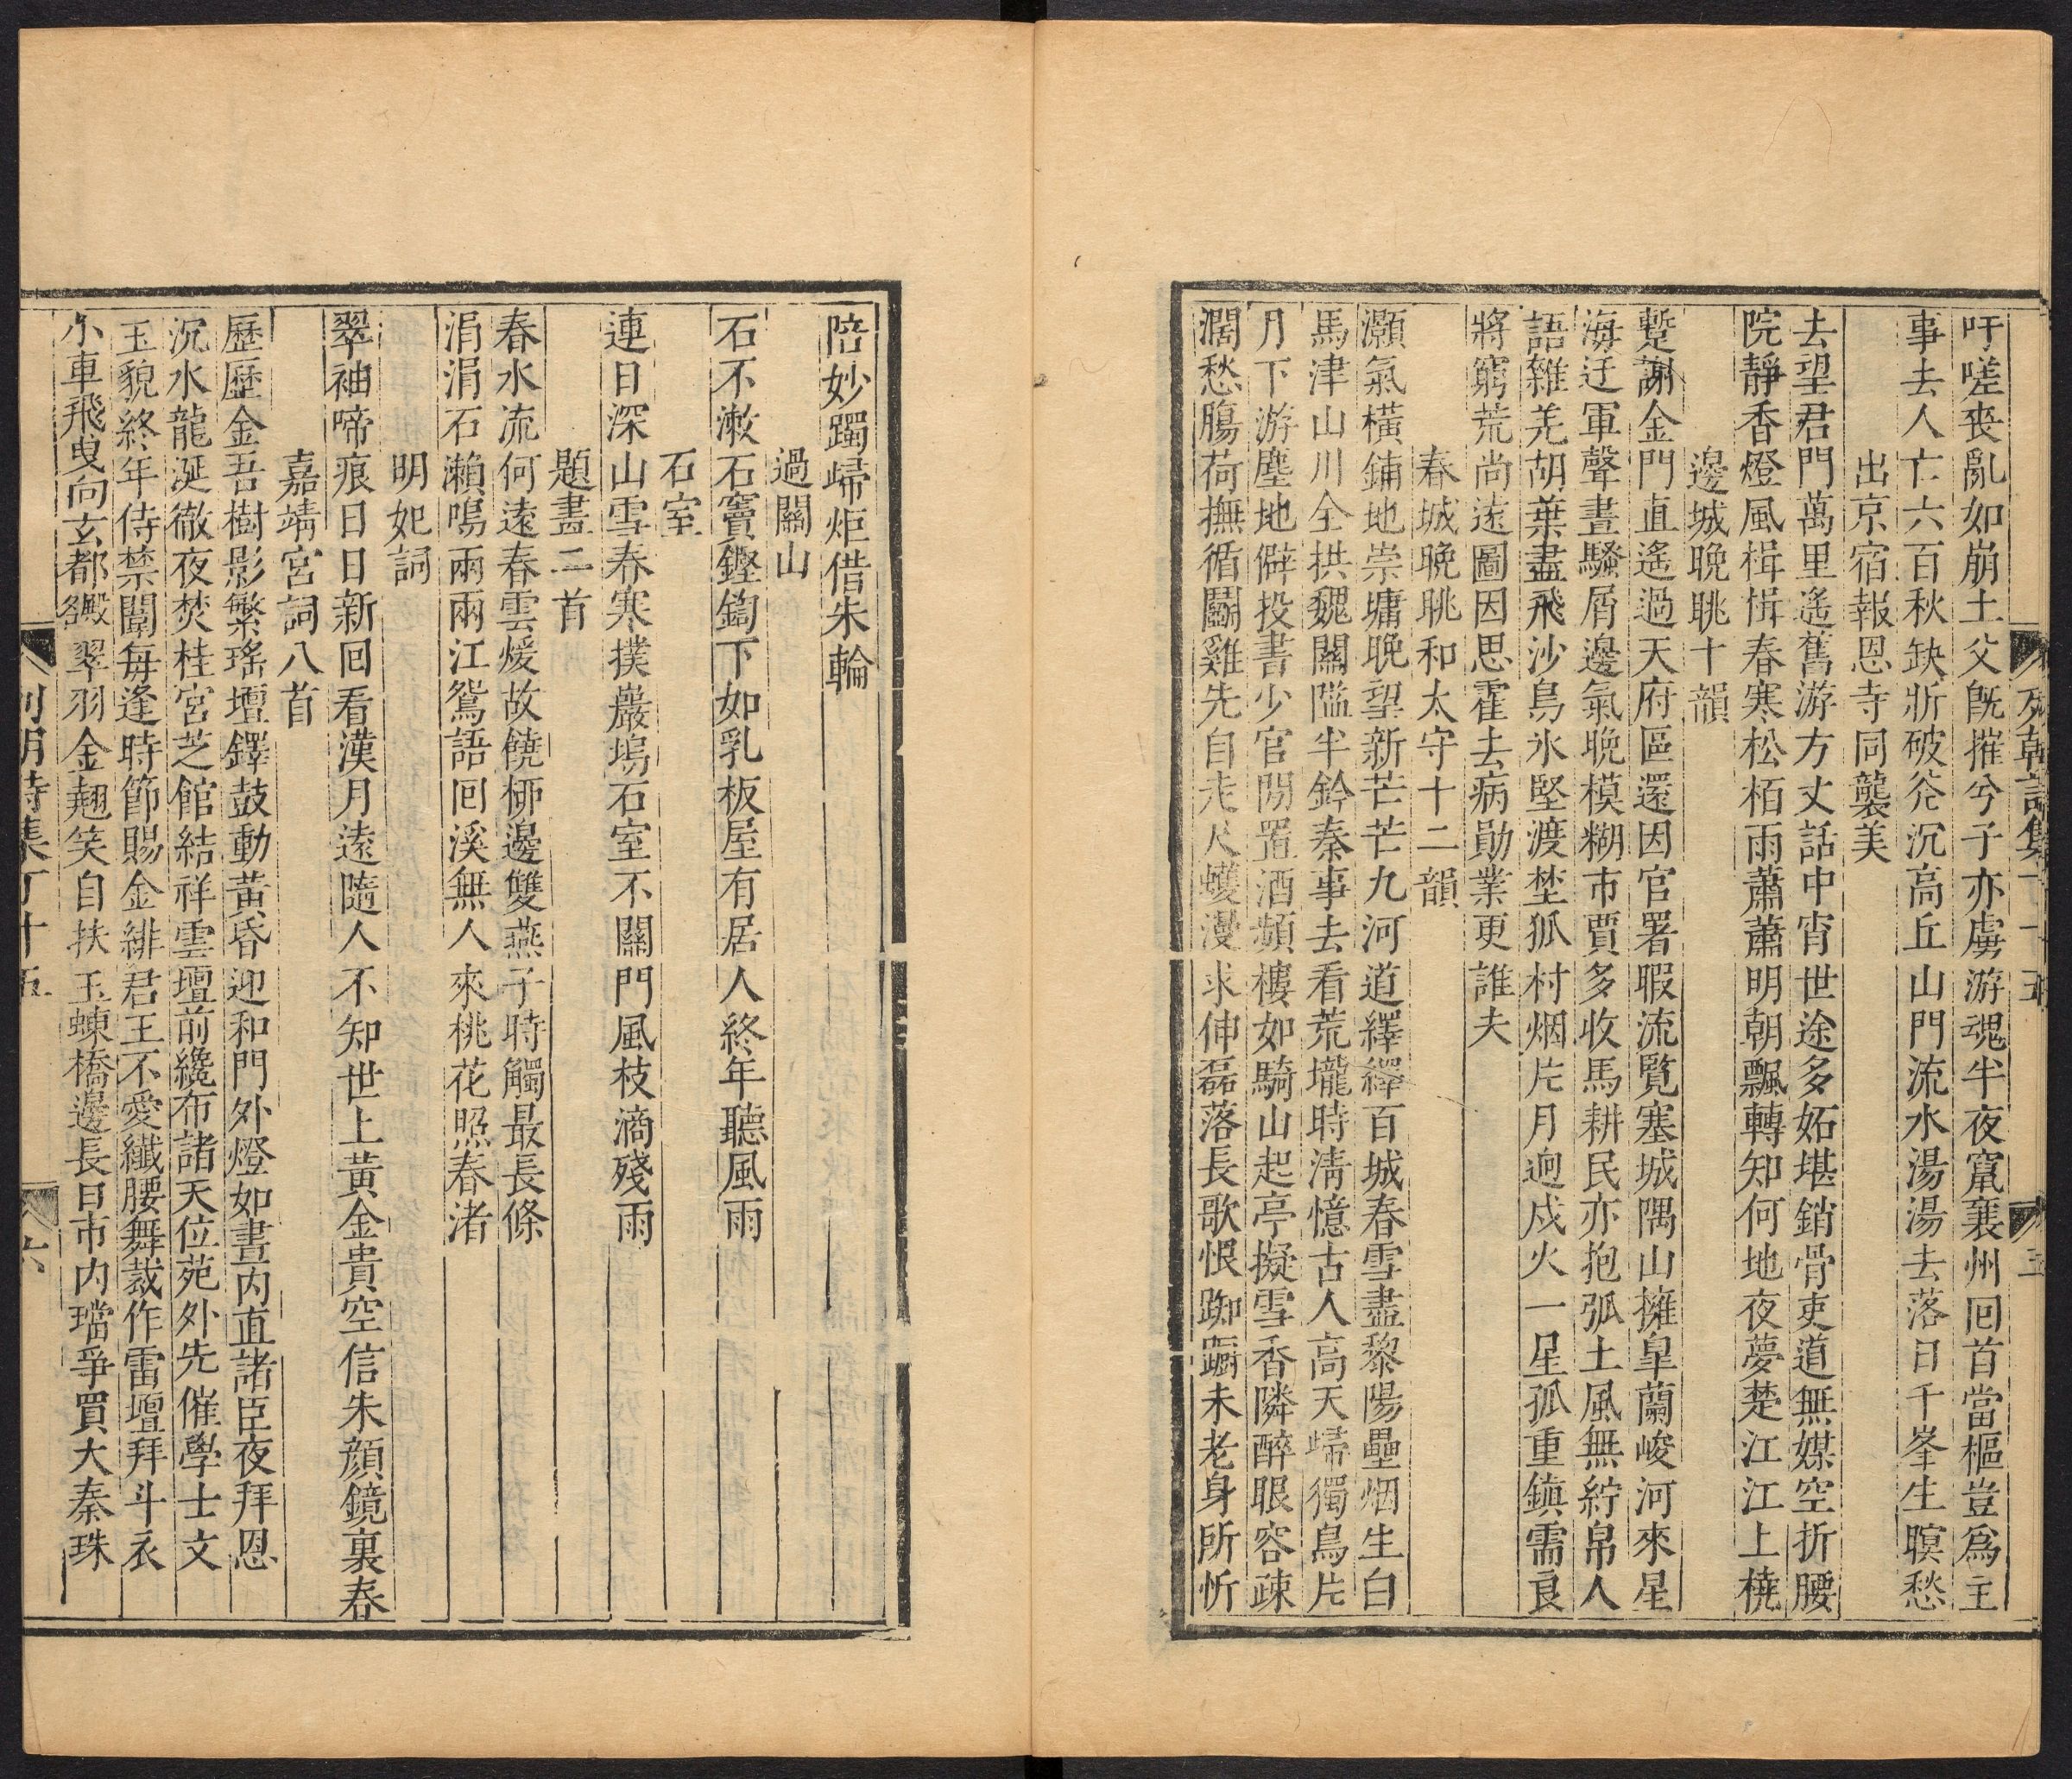 吁嗟喪亂如崩土父旣摧兮子亦虜游魂半夜竄襄州回首當樞豈爲主
事去人亡六百秋缺斨破斧沉高丘山門流水湯湯去落日千峯生暝愁
出京宿報恩寺同襲美
去望君門萬里遙舊游方丈話中宵世途多妬堪銷骨吏道無媒空折腰
院靜香燈風楫楫春寒松栢雨蕭蕭明朝飄轉知何地夜夢楚江江上橈
邊城晚眺十韻
蹔謝金門直遙過天府區還因官署暇流覽塞城隅山擁臯蘭峻河來星
海迂軍聲晝騷屑邊氣晚模糊市賈多收馬耕民亦抱弧土風無紵帛人
語雜羌胡葉盡飛沙鳥氷堅渡埜狐村烟片月逈戍火一星孤重鎮需良
將窮荒尚遠圖因思霍去病勛業更誰夫
春城晚眺和太守十二韻
灝氣橫鋪地崇墉晚望新芒芒九河道繹繹百城春雪盡黎陽壘烟生白
馬津山川全拱魏關隘半鈐秦事去看荒壠時淸憶古人高天歸獨鳥片
月下游塵地僻投書少官閒置酒頻樓如騎山起亭擬雪香隣醉眼容疎
濶愁膓荷撫循鬭雞先自走尺蠖漫求伸磊落長歌恨踟躕未老身所忻
列朝詩集丁十五
五
陪妙躅歸炬借朱輪
過關山
石不漱石竇鏗鍧下如乳板屋有居人終年聽風雨
石室
連日深山雪春寒撲巖塢石室不關門風枝滴殘雨
題畫二首
春水流何遠春雲煖故饒栁邊雙燕子時觸最長條
涓涓石瀨鳴兩兩江鴛語回溪無人來桃花照春渚
明妃詞
翠袖啼痕日日新回看漢月遠隨人不知世上黃金貴空信朱顔鏡裏春
嘉靖宮詞八首
歷歷金吾樹影繁瑤壇鐸鼓動黃昏迎和門外燈如晝内直諸臣夜拜恩
沉水龍涎徹夜焚桂宮芝館結祥雲壇前纔布諸天位苑外先催學士文
玉貌終年侍禁闈每逢時節賜金緋君王不愛纖腰舞裁作雷壇拜斗衣
小車飛曳向玄都翠羽金翹笑自扶玉蝀橋邊長日市内璫爭買大秦珠
列朝詩集丁十五
六